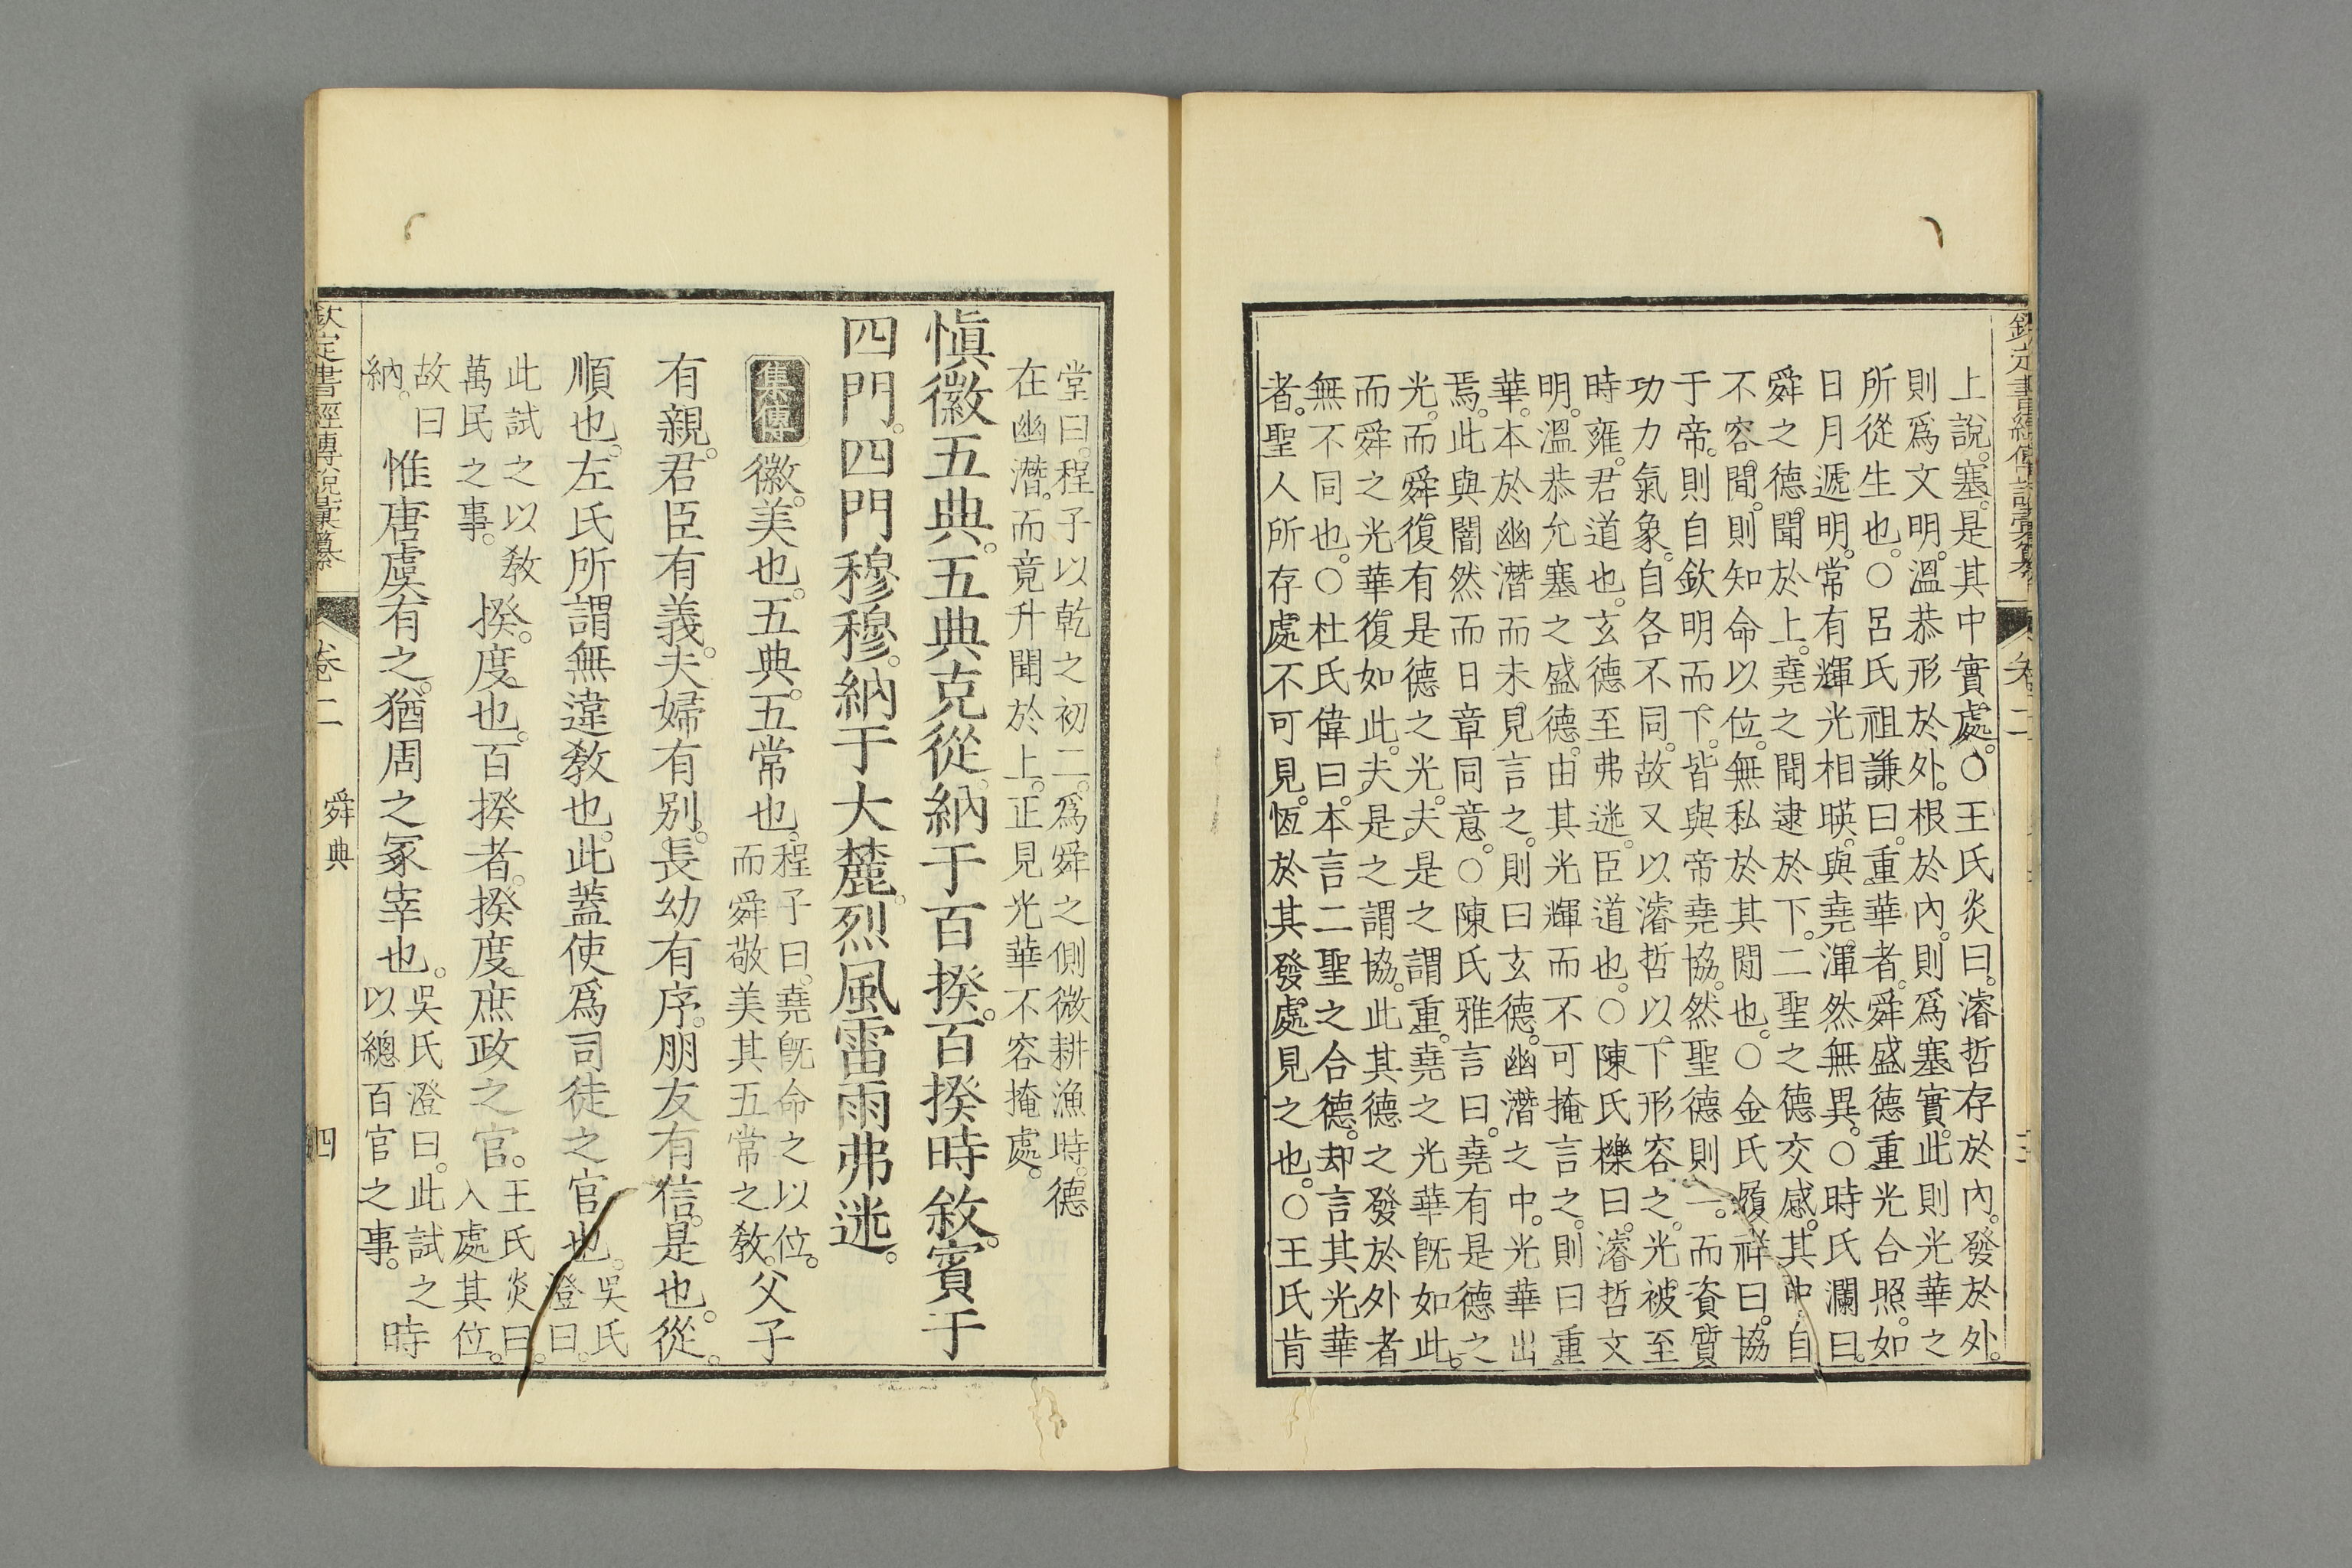 欽定書經傳說彙纂 卷二
上說。塞。是其中實處。○王氏炎曰。濬哲存於內。發於外。
則爲文明。溫恭形於外。根於內。則爲塞實。此則光華之
所從生也。○呂氏祖謙曰。重華者。舜盛德重光合照。如
日月遞明。常有輝光相暎。與堯渾然無異。○時氏瀾曰。
舜之德。聞於上。堯之聞逮於下。二聖之德交感。其中自
不容閒。則知命以位。無私於其閒也。○金氏履祥曰。協
于帝。則自欽明而下。皆與帝堯協。然聖德則一。而資質
功力氣象。自各不同。故又以濬哲以下形容之。光被至
時雍。君道也。玄德至弗迷。臣道也。○陳氏櫟曰。濬哲文
明。溫恭允塞之盛德。由其光輝而不可掩言之。則曰重
華。本於幽潛而未見言之。則曰玄德。幽潛之中。光華出
焉。此與闇然而日章同意。○陳氏雅言曰。堯有是德之
光。而舜復有是德之光。夫是之謂重。堯之光華旣如此。
而舜之光華。復如此。夫是之謂協。此其德之發於外者
無不同也。○杜氏偉曰。本言二聖之合德。却言其光華
者。聖人所存處不可見。恆於其發處見之也。○王氏肯
堂曰。程子以乾之初二。爲舜之側微耕漁時。德
在幽潛。而竟升聞於上。正見光華不容掩處。
愼徽五典。五典克從。納于百揆。百揆時敘。賓于
四門。四門穆穆。納于大麓。烈風雷雨弗迷。
集傳 徽。美也。五典。五常也。程子曰。堯旣命之以位。而舜敬美其五常之敎。父子
有親。君臣有義。夫婦有別。長幼有序。朋友有信。是也。從。
順也。左氏所謂無違敎也。此蓋使爲司徒之官也。吳氏澄曰。
此試之以敎萬民之事。揆。度也。百揆者。揆度庶政之官。王氏炎曰。入處其位。
故曰納。惟唐虞有之。猶周之冢宰也。吳氏澄曰。此試之以總百官之事。時
欽定書經傳說彙纂 卷二 舜典 四